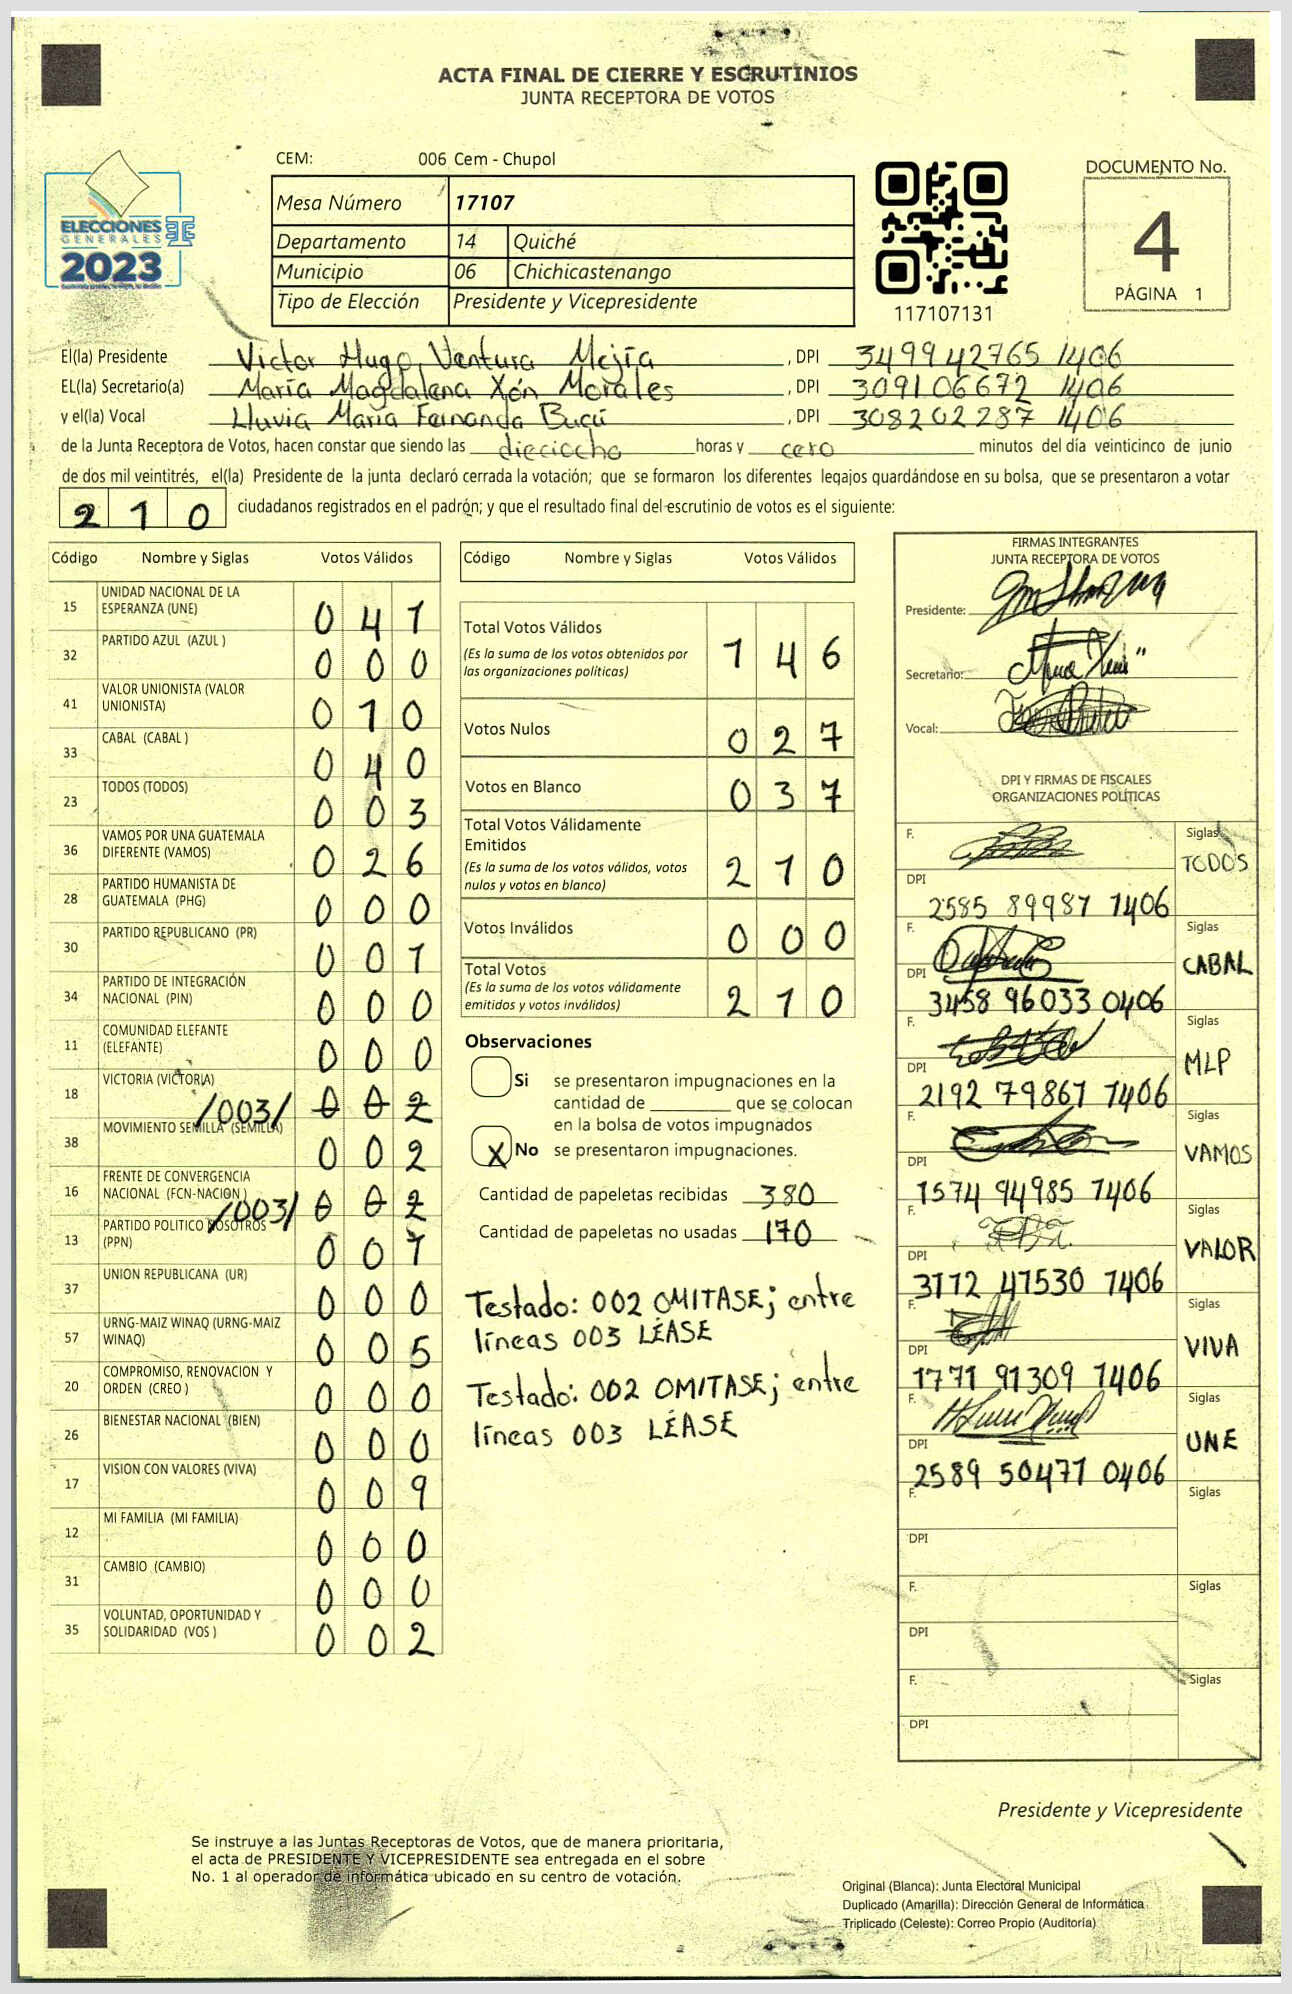 ACTA FINAL DE CIERRE Y ESCRUTINIOS
JUNTA RECEPTORA DE VOTOS
ELECCIONES
GENERALES
2023
CEM: 006 Cem - Chupol
Mesa Número 17107
Departamento 14 Quiché
Municipio 06 Chichicastenango
Tipo de Elección Presidente y Vicepresidente
117107131
DOCUMENTO No.
4
PÁGINA 1
El(la) Presidente Victor Hugo Ventura Mejía , DPI 349942765 1406
EL(la) Secretario(a) María Magdalena Xón Morales , DPI 309106672 1406
y el(la) Vocal Lluvia María Fernanda Bucú , DPI 308202287 1406
de la Junta Receptora de Votos, hacen constar que siendo las dieciocho horas y cero minutos del día veinticinco de junio
de dos mil veintitrés, el(la) Presidente de la junta declaró cerrada la votación; que se formaron los diferentes legajos guardándose en su bolsa, que se presentaron a votar
2 1 0 ciudadanos registrados en el padrón; y que el resultado final del escrutinio de votos es el siguiente:
Código Nombre y Siglas Votos Válidos
15 UNIDAD NACIONAL DE LA
ESPERANZA (UNE) 0 4 1
32 PARTIDO AZUL (AZUL ) 0 0 0
41 VALOR UNIONISTA (VALOR
UNIONISTA) 0 1 0
33 CABAL (CABAL ) 0 4 0
23 TODOS (TODOS) 0 0 3
36 VAMOS POR UNA GUATEMALA
DIFERENTE (VAMOS) 0 2 6
28 PARTIDO HUMANISTA DE
GUATEMALA (PHG) 0 0 0
30 PARTIDO REPUBLICANO (PR) 0 0 1
34 PARTIDO DE INTEGRACIÓN
NACIONAL (PIN) 0 0 0
11 COMUNIDAD ELEFANTE
(ELEFANTE) 0 0 0
18 VICTORIA (VICTORIA)
/003/ 0 0 2
38 MOVIMIENTO SEMILLA (SEMILLA) 0 0 2
16 FRENTE DE CONVERGENCIA
NACIONAL (FCN-NACION )
/003/ 0 0 2
13 PARTIDO POLITICO NOSOTROS
(PPN) 0 0 1
37 UNION REPUBLICANA (UR) 0 0 0
57 URNG-MAIZ WINAQ (URNG-MAIZ
WINAQ) 0 0 5
20 COMPROMISO, RENOVACION Y
ORDEN (CREO ) 0 0 0
26 BIENESTAR NACIONAL (BIEN) 0 0 0
17 VISION CON VALORES (VIVA) 0 0 9
12 MI FAMILIA (MI FAMILIA) 0 0 0
31 CAMBIO (CAMBIO) 0 0 0
35 VOLUNTAD, OPORTUNIDAD Y
SOLIDARIDAD (VOS ) 0 0 2
Código Nombre y Siglas Votos Válidos
Total Votos Válidos
(Es la suma de los votos obtenidos por
las organizaciones políticas) 1 4 6
Votos Nulos 0 2 7
Votos en Blanco 0 3 7
Total Votos Válidamente
Emitidos
(Es la suma de los votos válidos, votos
nulos y votos en blanco) 2 1 0
Votos Inválidos 0 0 0
Total Votos
(Es la suma de los votos válidamente
emitidos y votos inválidos) 2 1 0
Observaciones
Si se presentaron impugnaciones en la
cantidad de ________ que se colocan
en la bolsa de votos impugnados
X No se presentaron impugnaciones.
Cantidad de papeletas recibidas 380
Cantidad de papeletas no usadas 170
Testado: 002 OMITASE; entre
líneas 003 LÉASE
Testado: 002 OMITASE; entre
líneas 003 LÉASE
FIRMAS INTEGRANTES
JUNTA RECEPTORA DE VOTOS
Presidente:
Secretario:
Vocal:
DPI Y FIRMAS DE FISCALES
ORGANIZACIONES POLÍTICAS
F. Siglas
TODOS
DPI
2585 89987 1406
F. Siglas
CABAL
DPI
3458 96033 0406
F. Siglas
MLP
DPI
2192 79867 1406
F. Siglas
VAMOS
DPI
1574 94985 1406
F. Siglas
VALOR
DPI
3172 47530 1406
F. Siglas
VIVA
DPI
1771 91309 1406
F. Siglas
UNE
DPI
2589 50471 0406
F. Siglas
DPI
F. Siglas
DPI
F. Siglas
DPI
Presidente y Vicepresidente
Se instruye a las Juntas Receptoras de Votos, que de manera prioritaria,
el acta de PRESIDENTE Y VICEPRESIDENTE sea entregada en el sobre
No. 1 al operador de informática ubicado en su centro de votación.
Original (Blanca): Junta Electoral Municipal
Duplicado (Amarilla): Dirección General de Informática
Triplicado (Celeste): Correo Propio (Auditoría)